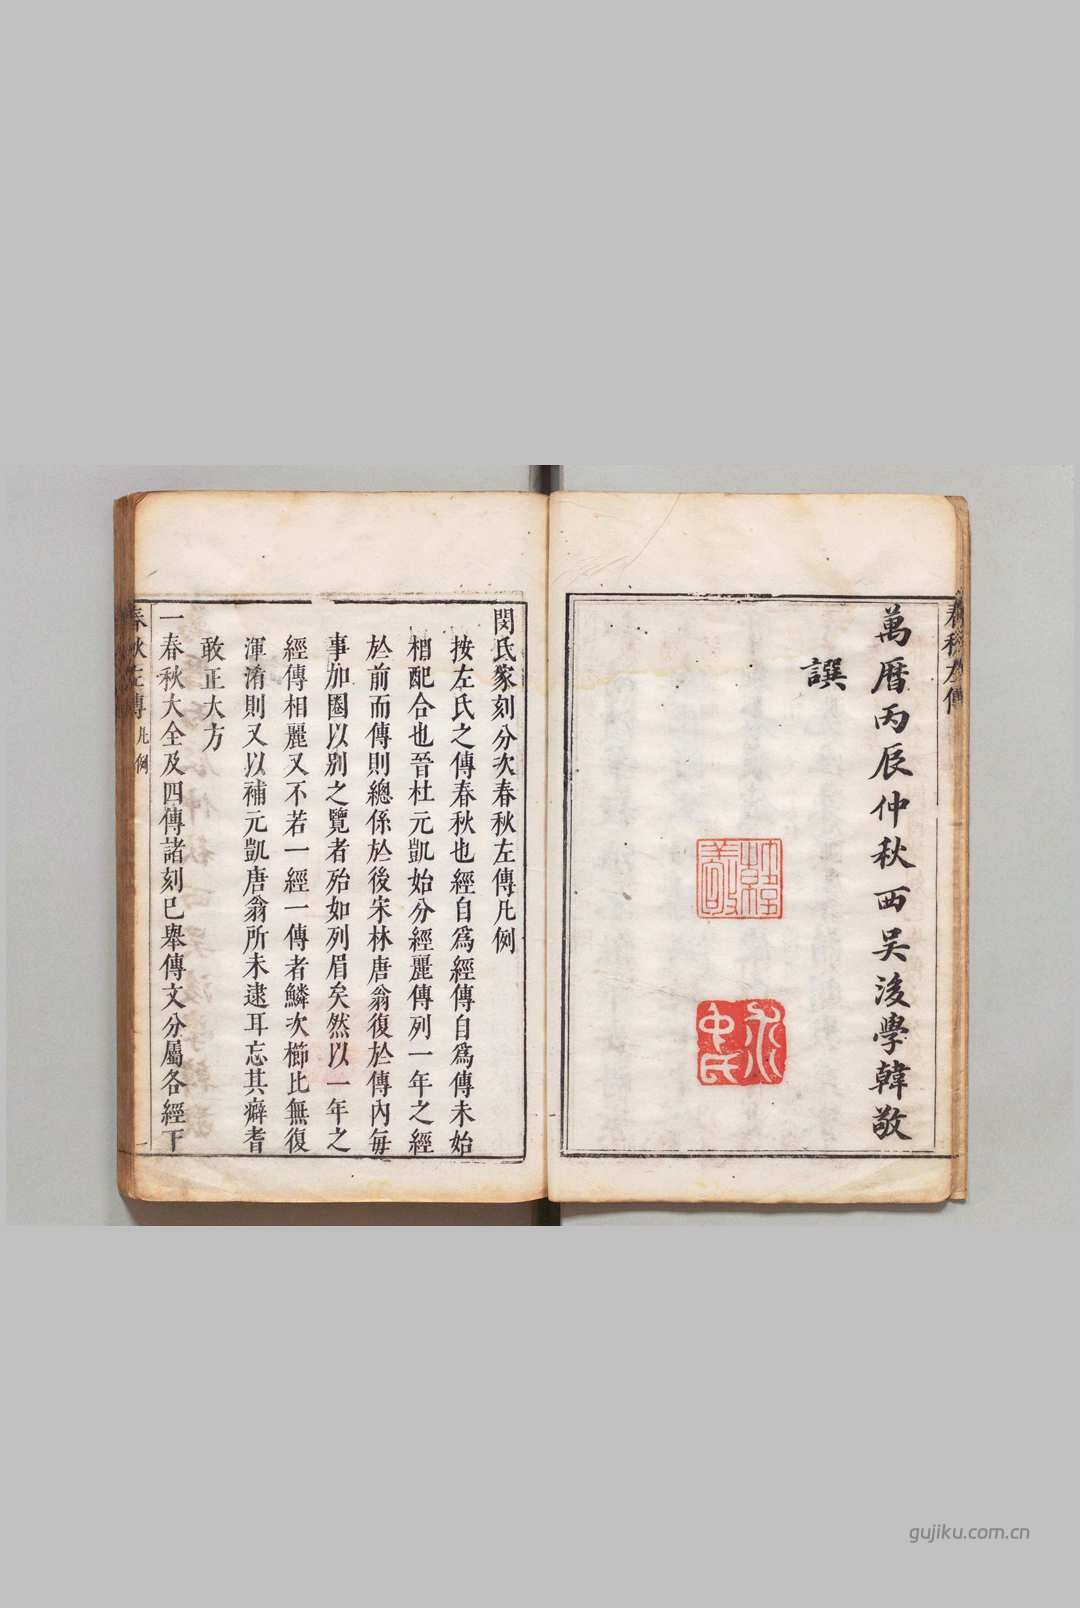 春秋左傳
萬曆丙辰仲秋西吴後學韓敬
譔
韓敬
閔氏家刻分次春秋左傳凡例
按左氏之傳春秋也經自爲經傳自爲傳未始
相配合也晉杜元凱始分經麗傳列一年之經
於前而傳則總係於後宋林唐翁復於傳內每
事加圈以别之覽者殆如列眉矣然以一年之
經傳相麗又不若一經一傳者鱗次櫛比無復
渾淆則又以補元凱唐翁所未逮耳忘其癖耆
敢正大方
一春秋大全及四傳諸刻已舉傳文分屬各經下
春秋左傳 凡例 一
gujiku.com.cn